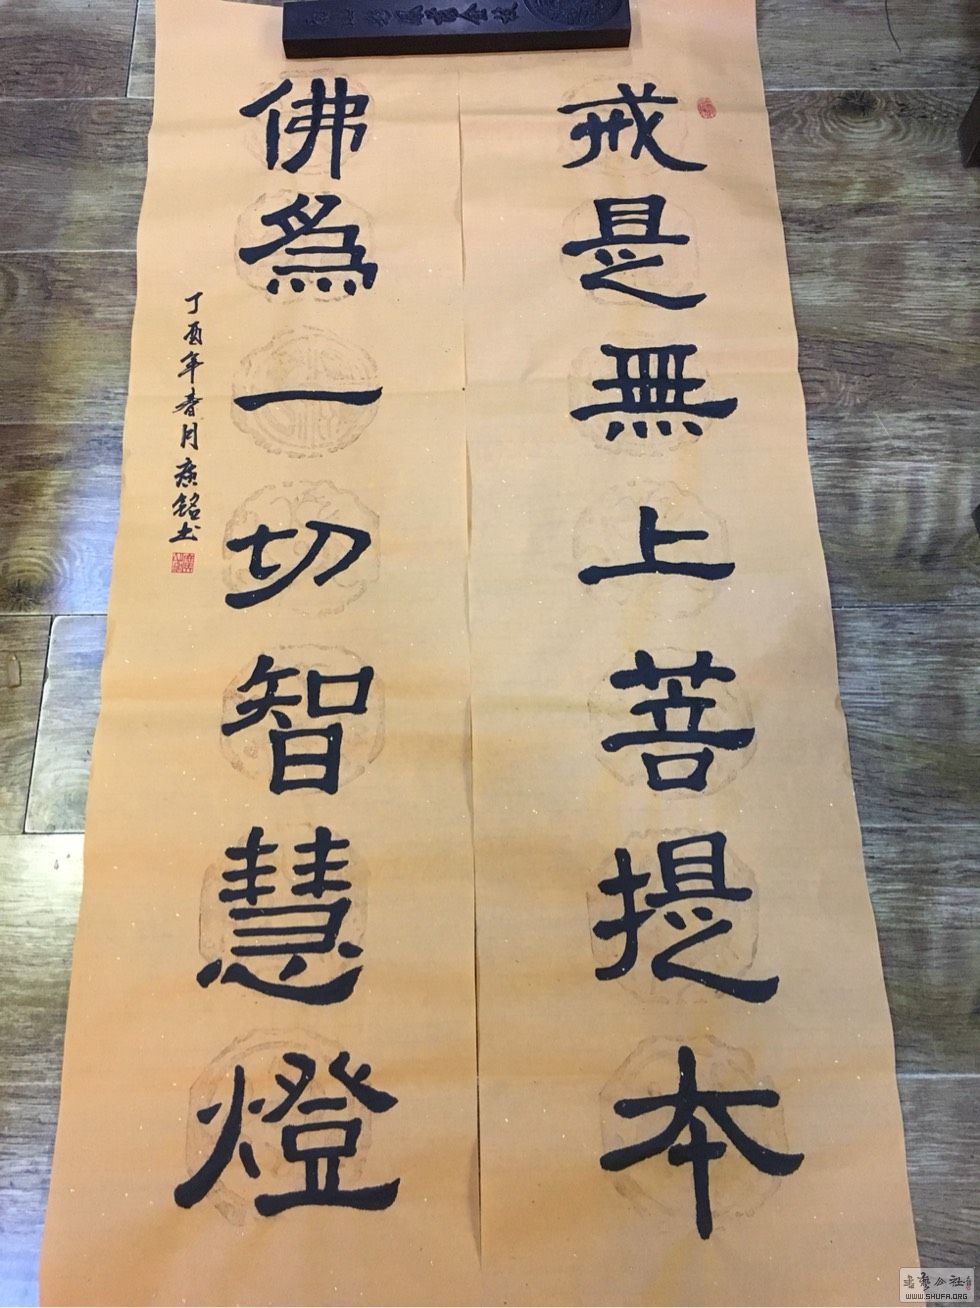 戒是無上菩提本
佛為一切智慧燈
丁酉年春月彦銘书
WWW.SHUFA.ORG